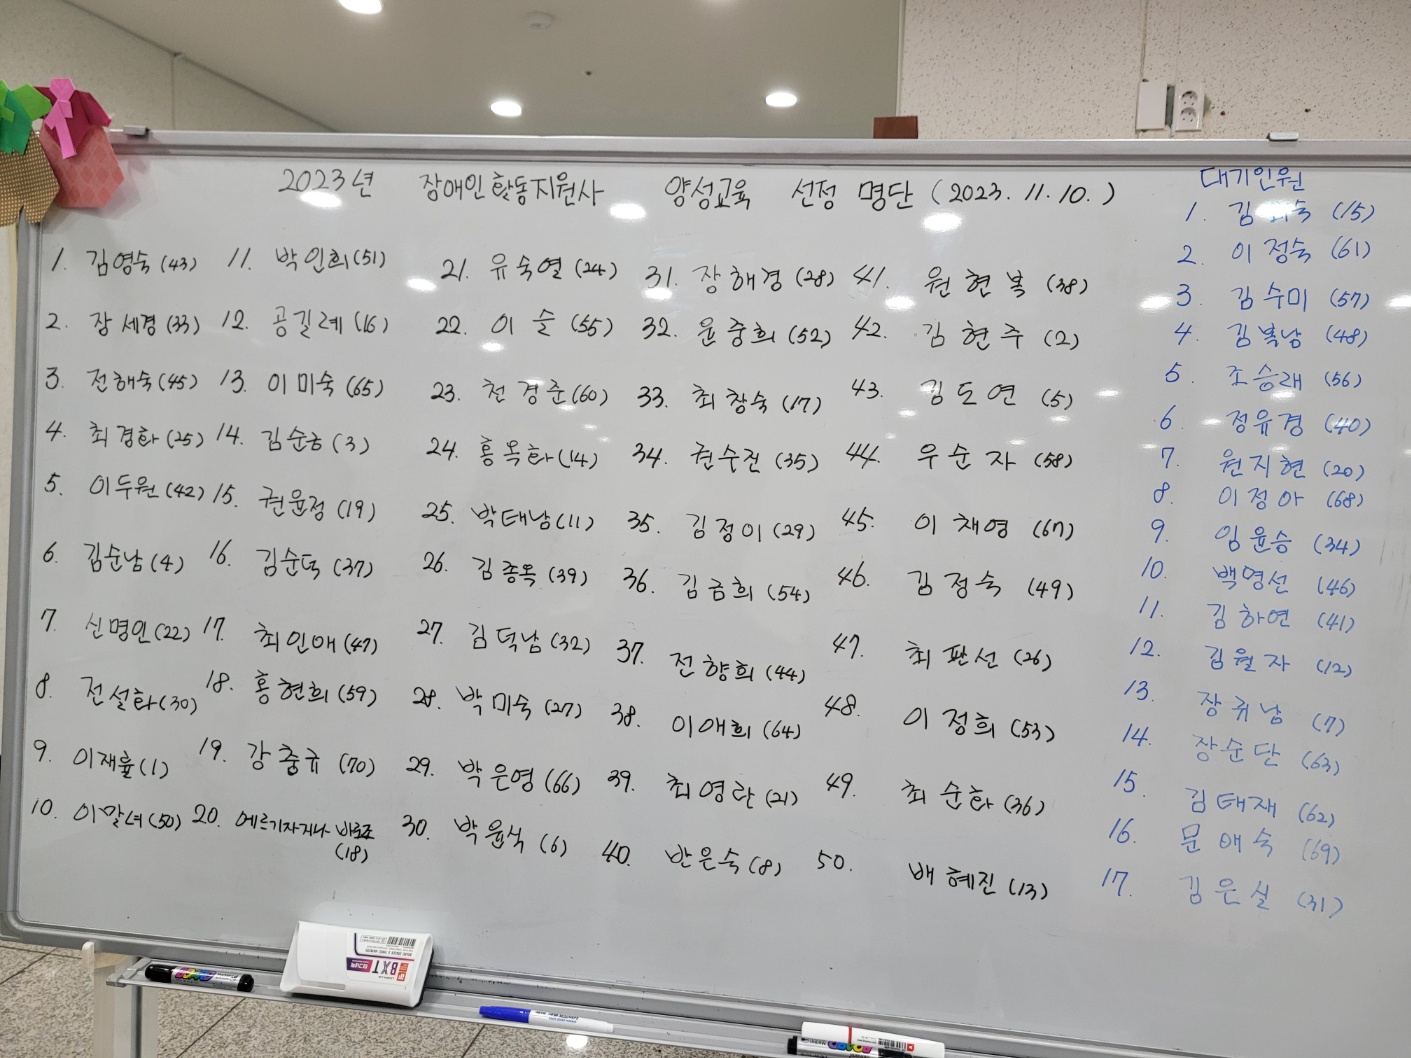 2023년 장애인활동지원사 양성교육 선정 명단 (2023. 11. 10.)
1. 김영숙 (43)
2. 장세경 (33)
3. 전해숙 (45)
4. 최경화 (25)
5. 이두원 (42)
6. 김순남 (4)
7. 신명인 (22)
8. 전설화 (30)
9. 이재률 (1)
10. 이말녀 (50)
11. 박인희 (51)
12. 공길례 (16)
13. 이미숙 (65)
14. 김순농 (3)
15. 권윤정 (19)
16. 김순덕 (37)
17. 최인애 (47)
18. 홍현희 (59)
19. 강충규 (70)
20. 에르기자지나 바로조 (18)
21. 유숙열 (24)
22. 이슬 (55)
23. 천경준 (60)
24. 홍옥화 (14)
25. 박태남 (11)
26. 김종옥 (39)
27. 김덕남 (32)
28. 박미숙 (27)
29. 박은영 (66)
30. 박윤식 (6)
31. 장해경 (28)
32. 윤중희 (52)
33. 최창숙 (17)
34. 권수진 (35)
35. 김정이 (29)
36. 김금희 (54)
37. 전향희 (44)
38. 이애희 (64)
39. 최영란 (21)
40. 반은숙 (8)
41. 원현복 (38)
42. 김현주 (2)
43. 김도연 (5)
44. 우순자 (58)
45. 이채영 (67)
46. 김정숙 (49)
47. 최판선 (26)
48. 이정희 (53)
49. 최순화 (36)
50. 배혜진 (13)
대기인원
1. 김 숙 (15)
2. 이정숙 (61)
3. 김수미 (57)
4. 김복남 (48)
5. 조승래 (56)
6. 정유경 (40)
7. 원지현 (20)
8. 이정아 (68)
9. 임윤승 (34)
10. 백명선 (46)
11. 김하연 (41)
12. 김월자 (12)
13. 장귀남 (7)
14. 장순단 (63)
15. 김태재 (62)
16. 문애숙 (69)
17. 김은실 (31)
BXT